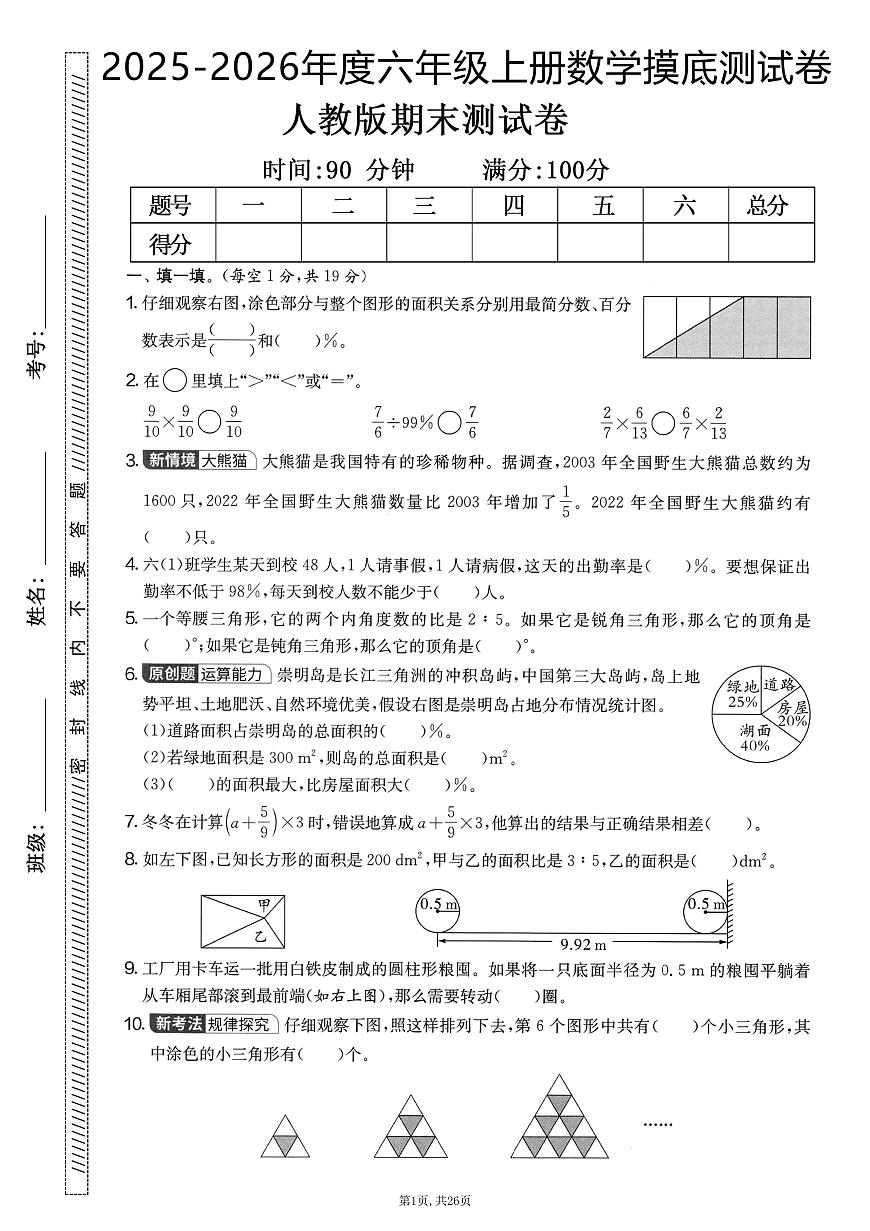 2025-2026年度六年级上册数学摸底测试卷
人教版期末测试卷
时间:90 分钟 满分:100分
题号 一 二 三 四 五 六 总分
得分
一、填一填。(每空1分,共19分)
1. 仔细观察右图,涂色部分与整个图形的面积关系分别用最简分数、百分
数表示是( )/( )和( )%。
2. 在○里填上“>”“<”或“=”。
9/10×9/10○9/10 7/6÷99%○7/6 2/7×6/13○6/7×2/13
3. 新情境 大熊猫 大熊猫是我国特有的珍稀物种。据调查,2003 年全国野生大熊猫总数约为
1600 只,2022 年全国野生大熊猫数量比 2003 年增加了1/5。2022 年全国野生大熊猫约有
( )只。
4. 六(1)班学生某天到校 48 人,1 人请事假,1 人请病假,这天的出勤率是( )%。要想保证出
勤率不低于 98%,每天到校人数不能少于( )人。
5. 一个等腰三角形,它的两个内角度数的比是 2∶5。如果它是锐角三角形,那么它的顶角是
( )°;如果它是钝角三角形,那么它的顶角是( )°。
6. 原创题 运算能力 崇明岛是长江三角洲的冲积岛屿,中国第三大岛屿,岛上地
势平坦、土地肥沃、自然环境优美,假设右图是崇明岛占地分布情况统计图。
(1)道路面积占崇明岛的总面积的( )%。
(2)若绿地面积是 300 m²,则岛的总面积是( )m²。
(3)( )的面积最大,比房屋面积大( )%。
绿地
25%
道路
房屋
20%
湖面
40%
7. 冬冬在计算(a+5/9)×3 时,错误地算成 a+5/9×3,他算出的结果与正确结果相差( )。
8. 如左下图,已知长方形的面积是 200 dm²,甲与乙的面积比是 3∶5,乙的面积是( )dm²。
甲
乙
0.5 m
0.5 m
9.92 m
9. 工厂用卡车运一批用白铁皮制成的圆柱形粮囤。如果将一只底面半径为 0.5 m 的粮囤平躺着
从车厢尾部滚到最前端(如右上图),那么需要转动( )圈。
10. 新考法 规律探究 仔细观察下图,照这样排列下去,第 6 个图形中共有( )个小三角形,其
中涂色的小三角形有( )个。
……
第1页,共26页
考号:
姓名:
班级:
密封线内不要答题